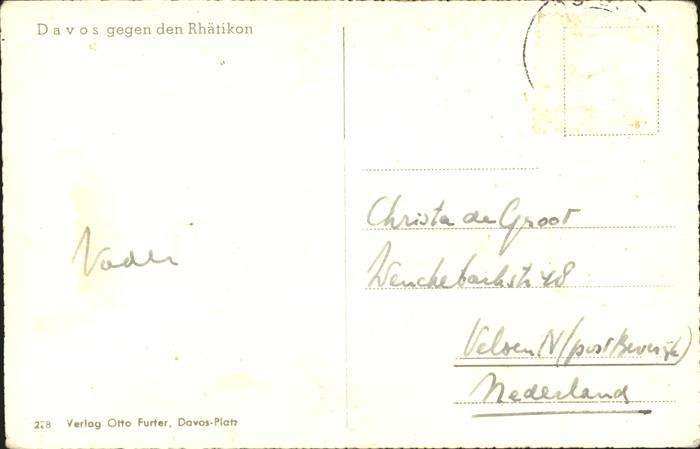 Davos gegen den Rhätikon
Vader
Christa de Groot
Wenckebachstr 48
Velsen N/(post Beverwijk)
Nederland
228 Verlag Otto Furter, Davos-Platz